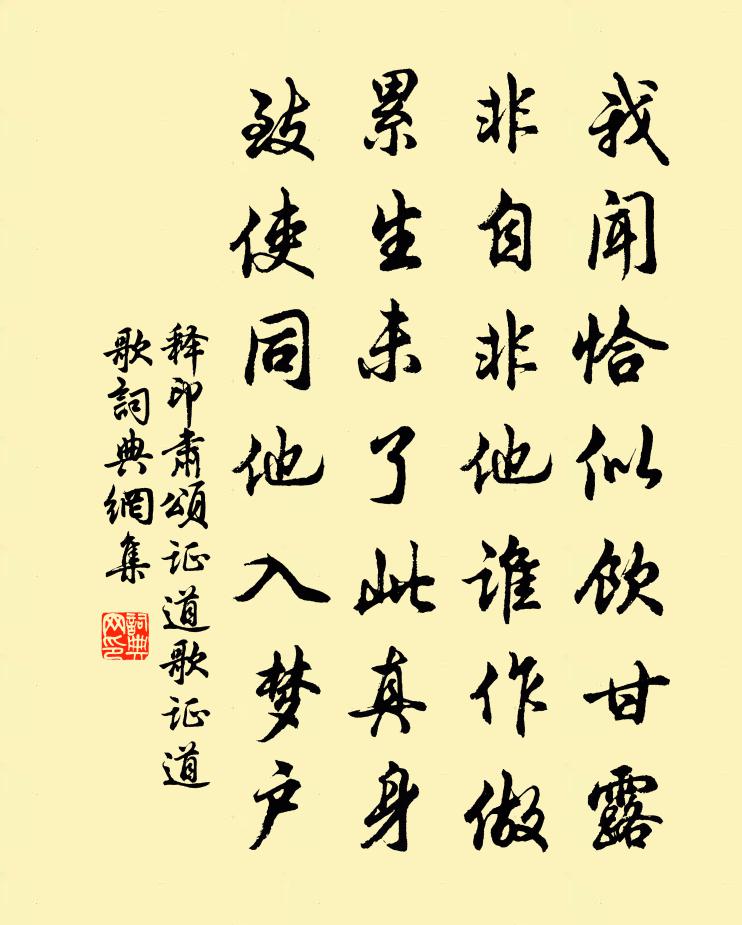 我闻恰似饮甘露
非自非他谁作做
累生未了此真身
致使同他入梦户
释印肃颂证道歌证道
歌詞典網集
詞典网印